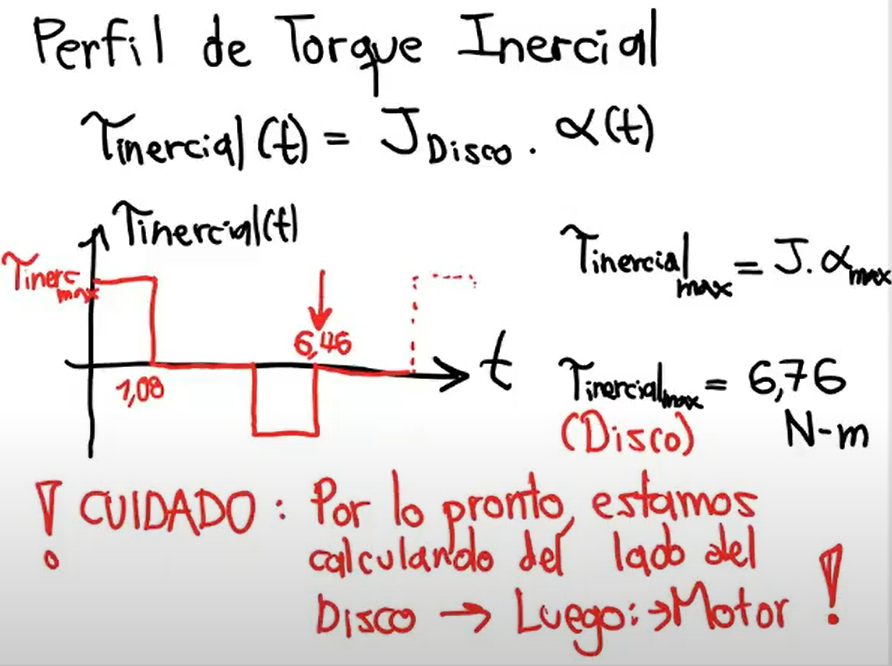 Perfil de Torque Inercial
τinercial(t) = J Disco . α(t)
τinercial(t)
τinerc max
6,46
t
1,08
τinercial max = J. α max
τinercial max = 6,76
(Disco) N-m
! CUIDADO: Por lo pronto, estamos
calculando del lado del
Disco → Luego: → Motor !